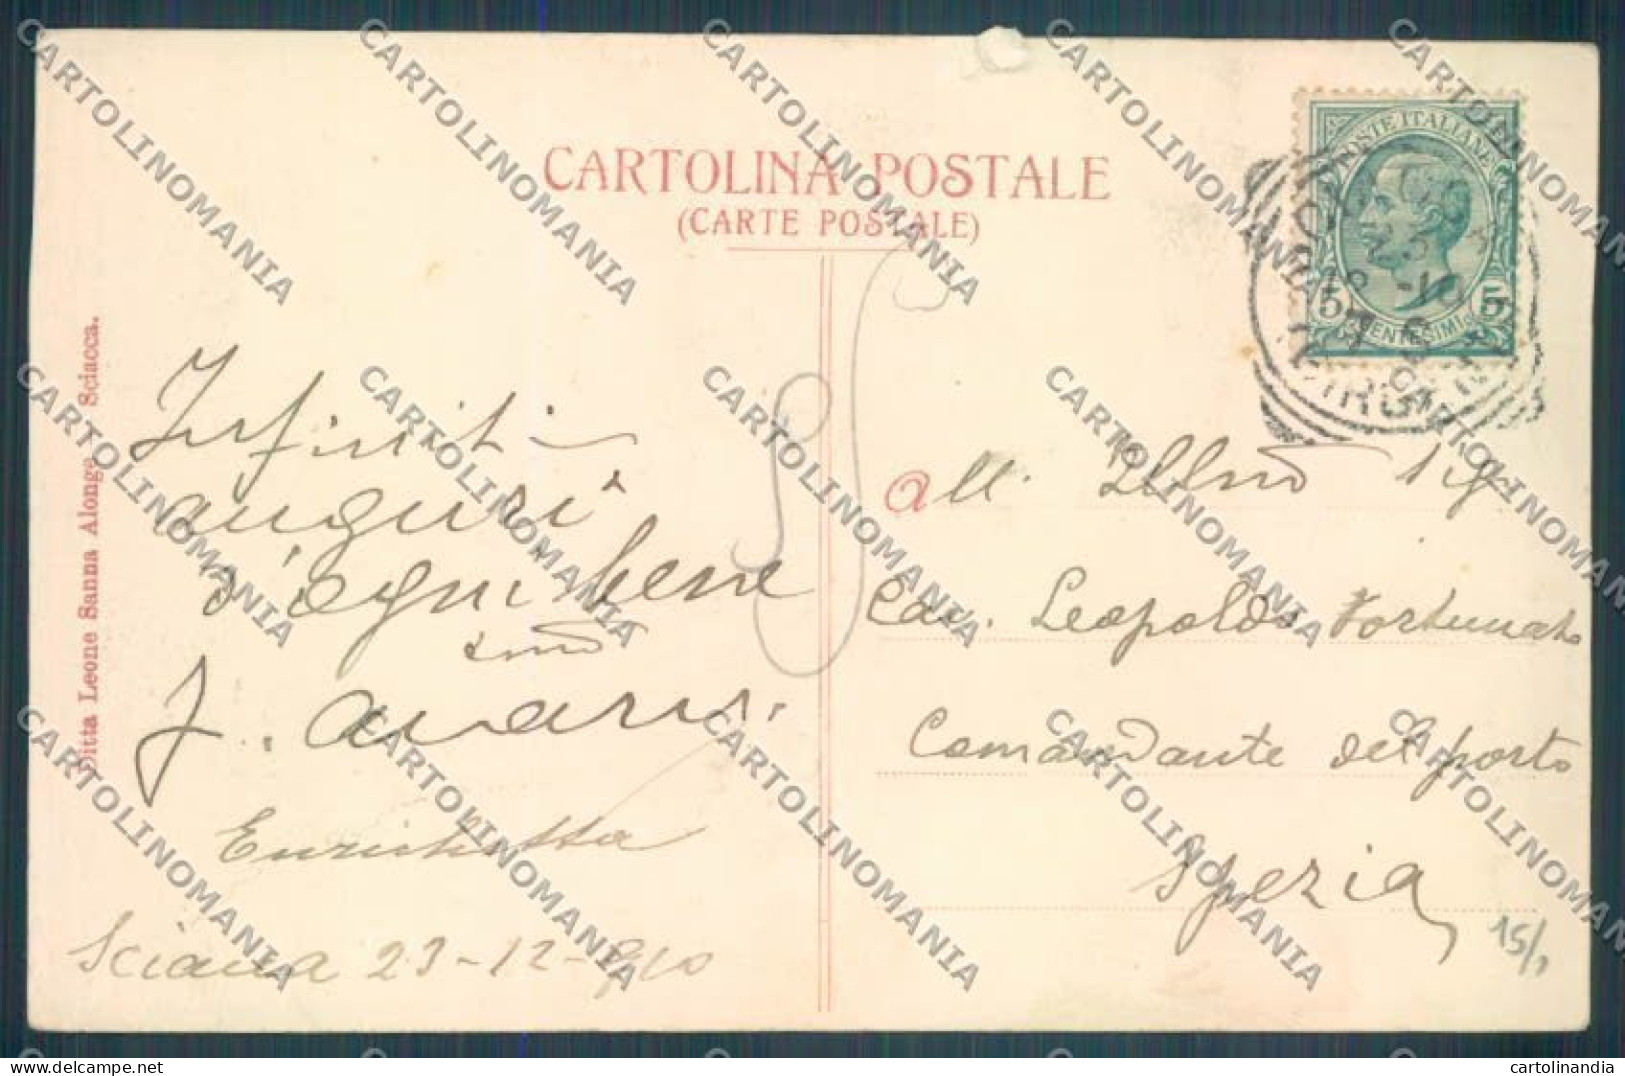 CARTOLINA POSTALE
(CARTE POSTALE)
POSTE ITALIANE
5 CENTESIMI 5
Ditta Leone Sanna Alonge - Sciacca.
Infiniti
auguri
d'ogni bene
Enrichetta
Sciacca 23-12-910
all' Illmo Sig
Cav. Leopoldo Fortunato
Comandante del porto
Spezia
15/
CARTOLINOMANIA
cartolinandia